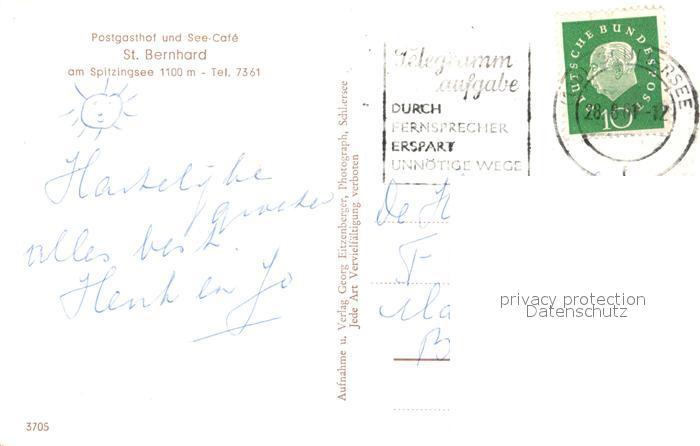 Postgasthof und See-Café
St. Bernhard
am Spitzingsee 1100 m - Tel. 7361
Hartelijke
groeten
alles best.
Henk en Jo
3705
Aufnahme u. Verlag Georg Eitzenberger, Photograph, Schliersee
Jede Art Vervielfältigung verboten
Telegramm
aufgabe
DURCH
FERNSPRECHER
ERSPART
UNNÖTIGE WEGE
DEUTSCHE BUNDESPOST
10
28.6.61-12
De
F
Ma
B
privacy protection
Datenschutz